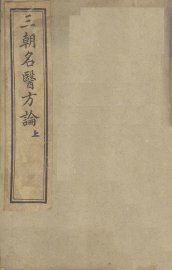 三朝名醫方論 上